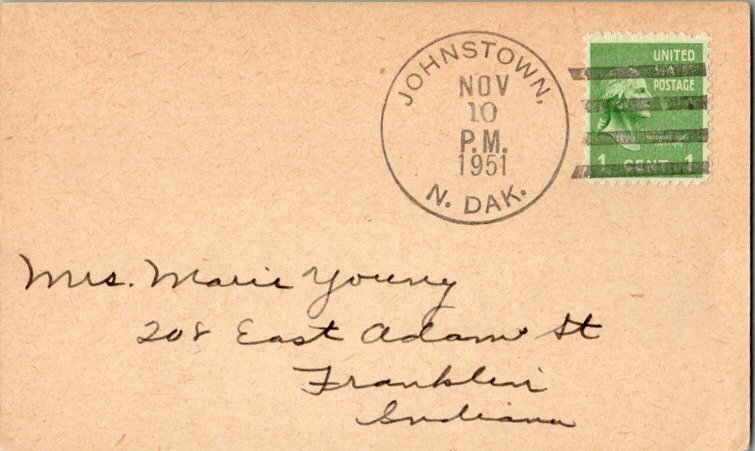 JOHNSTOWN,
NOV
10
P.M.
1951
N. DAK.
UNITED
POSTAGE
1 CENT 1
Mrs. Marie Young
208 East Adams St
Franklin
Indiana